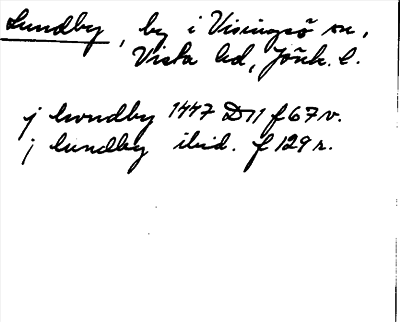 Lundby, by i Visingsö sn,
Vista hd, Jönk. l.
j lwndby 1447 D11 f 67 v.
j lundby ibid. f 129 r.